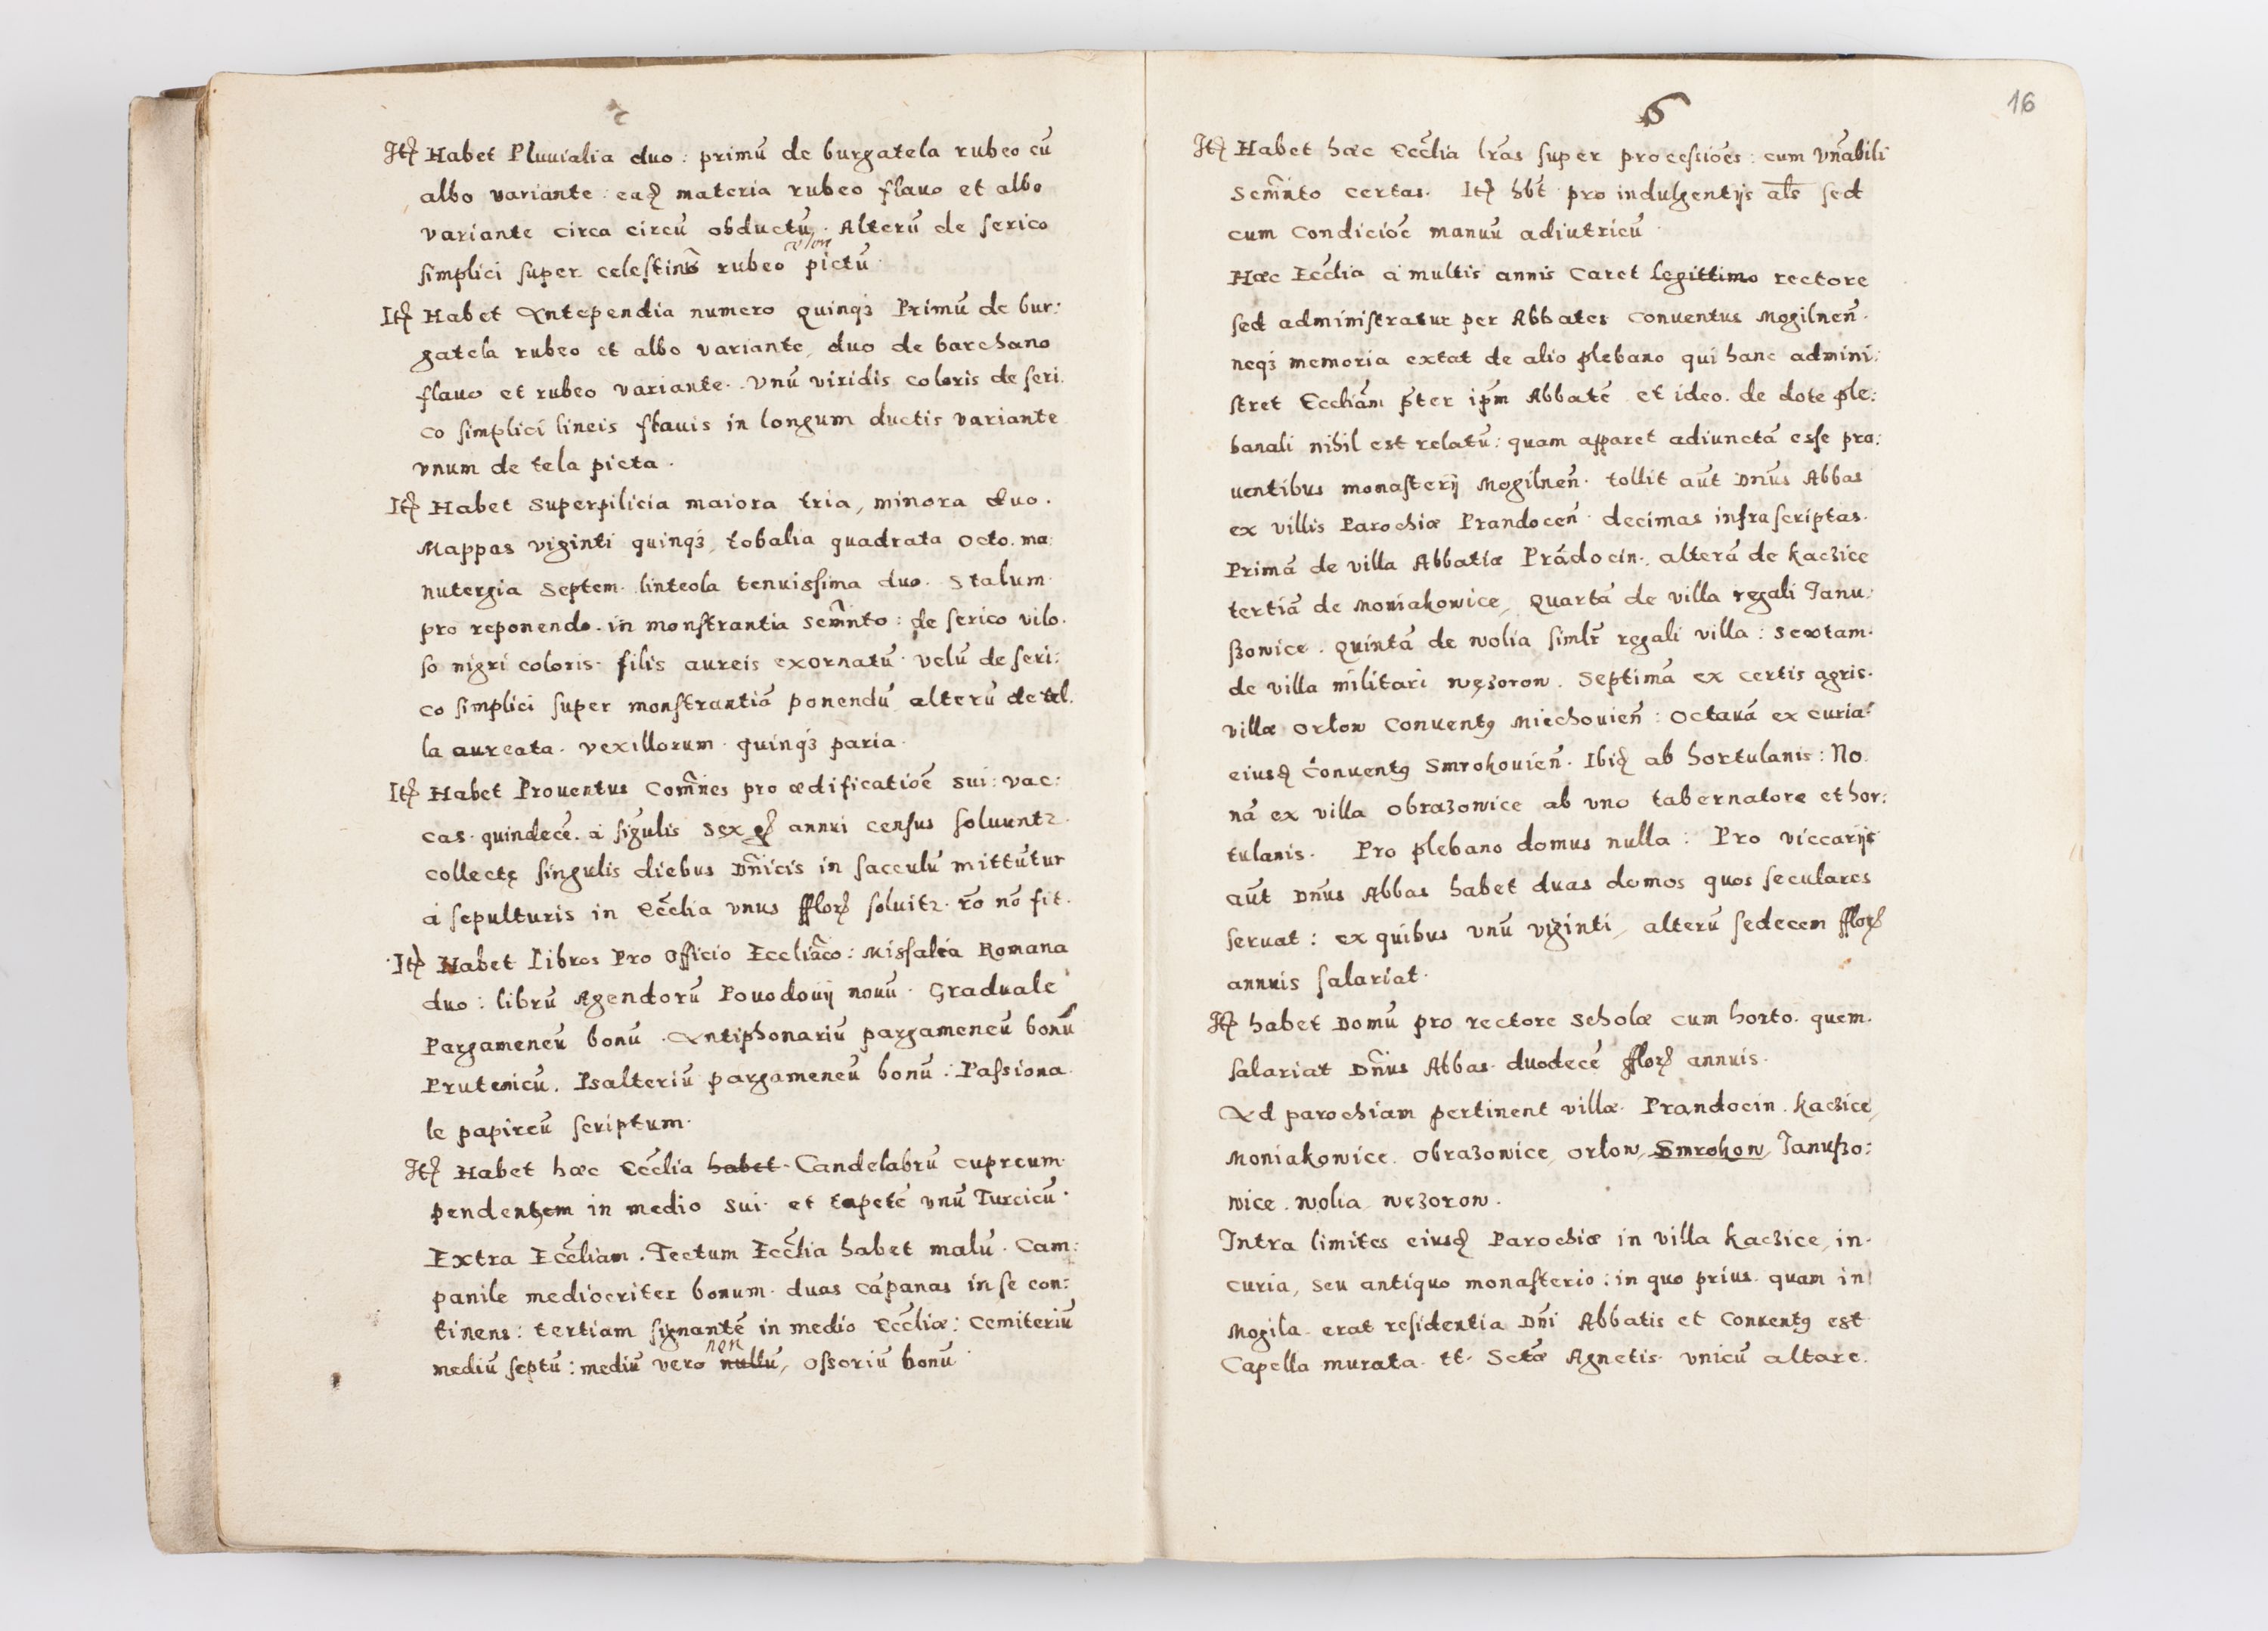 Itꝫ Habet Pluuialia duo: primū de burgatela rubeo cū
albo variante: eadꝫ materia rubeo flauo et albo
variante circa circū obductū. Alterū de serico
colore
simplici super celestinū rubeo pictū.
Itꝫ Habet Antependia numero quinqꝫ Primū de bur:
gatela rubeo et albo variante, duo de barchano
flauo et rubeo variante. Vnū viridis coloris de seri.
co simplici lineis flauis in longum ductis variante
vnum de tela picta.
Itꝫ Habet Superpilicia maiora tria, minora duo.
Mappas viginti quinqꝫ, tobalia quadrata octo. ma:
nutergia septem. linteola tenuissima duo. Stalum.
pro reponendo. in monstrantia Sem̃nto: de serico vilo.
so nigri coloris. filis aureis exornatū. velū de seri:
co simplici super monstrantiā ponendū alterū de tel.
la aureata. vexillorum. quinqꝫ paria.
Itꝫ Habet Prouentus Com̃nes pro ædificatioē sui: vac:
cas. quindecē. à sīgulis sex gͬ annui census soluuntꝛ.
collectę singulis diebus Dn̄icis in sacculū mittūtur
à sepulturis in Eccl̃ia vnus fflorꝫ soluitꝛ. rō nō fit.
Itꝫ Habet Libros Pro Officio Eccliãco: Missalia Romana
duo: librū Agendorū Pouodouij nouū. Graduale
Pargameneū bonū. Antiphonariū pargameneū bonū
Prutenicū. Psalteriū pargameneū bonū: Passiona.
le papireū scriptum.
Itꝫ Habet hæc Eccl̃ia habet. Candelabrū cupreum.
pendentem in medio sui. et tapetē vnū Turcicū.
Extra Eccl̃iam. Tectum Eccl̃ia habet malū. Cam:
panile mediocriter bonum. duas cāpanas in se con:
tinens: tertiam signantē in medio Eccl̃iæ: Cemiteriū
non
mediū septū: mediū vero nullū, ossoriū bonū.
6
16
Itꝫ Habet hæc Eccl̃ia lr̃as super processiōes: cum vn̄abili
Sem̃nto certas. Itꝫ hb̃t pro indulgentijs al̃s sed
cum Condicioē manuū adiutricū.
Hæc Eccl̃ia à multis annis Caret legittimo rectore
sed administratur per Abbates Conuentus Mogilnen̄.
neqꝫ memoria extat de alio plebano qui hanc admini:
stret Eccliām p̄ter ip̄m Abbatē et ideo. de dote ple:
banali nihil est relatū: quam apparet adiunctā esse pro:
uentibus monasterij Mogilnen̄. tollit aūt Dn̄us Abbas
ex villis Parochiæ Prandocen̄. decimas infrascriptas.
Primā de villa Abbatiæ Prādocin., alterā de Kaczice
tertiā de Moniakowice, Quartā de villa regali Ianu:
szowice. Quintā de Wolia siml̃r regali villa: Sextam.
de villa militari Węzorow. Septimā ex certis agris.
villæ Orłow Conuentꝰ Miechouien̄: Octauā ex curia:
eiusdꝫ Conuentꝰ Smrokouien̄. Ibidꝫ ab hortulanis: No
nā ex villa Obrazowice ab vno tabernatore et hor:
tulanis. Pro plebano domus nulla: Pro viccarijs
aūt Dn̄us Abbas habet duas domos quos seculares
seruat: ex quibus vnū viginti, alterū sedecem fflorꝫ
annuis salariat.
Itꝫ habet Domū pro rectore Scholæ cum horto. quem.
salariat Dn̄us Abbas. duodecē fflorꝫ annuis.
Ad parochiam pertinent villæ. Prandocin. Kaczice,
Moniakowice. Obrazowice, Orłow, Smrokow, Ianuszo:
wice. Wolia Węzorow.
Intra limites eiusdꝫ Parochiæ in villa Kaczice, in.
curia, seu antiquo monasterio: in quo prius. quam in
Mogila. erat residentia Dn̄i Abbatis et Conuentꝰ est
Capella murata. tt. Sctæ Agnetis. vnicū altare.